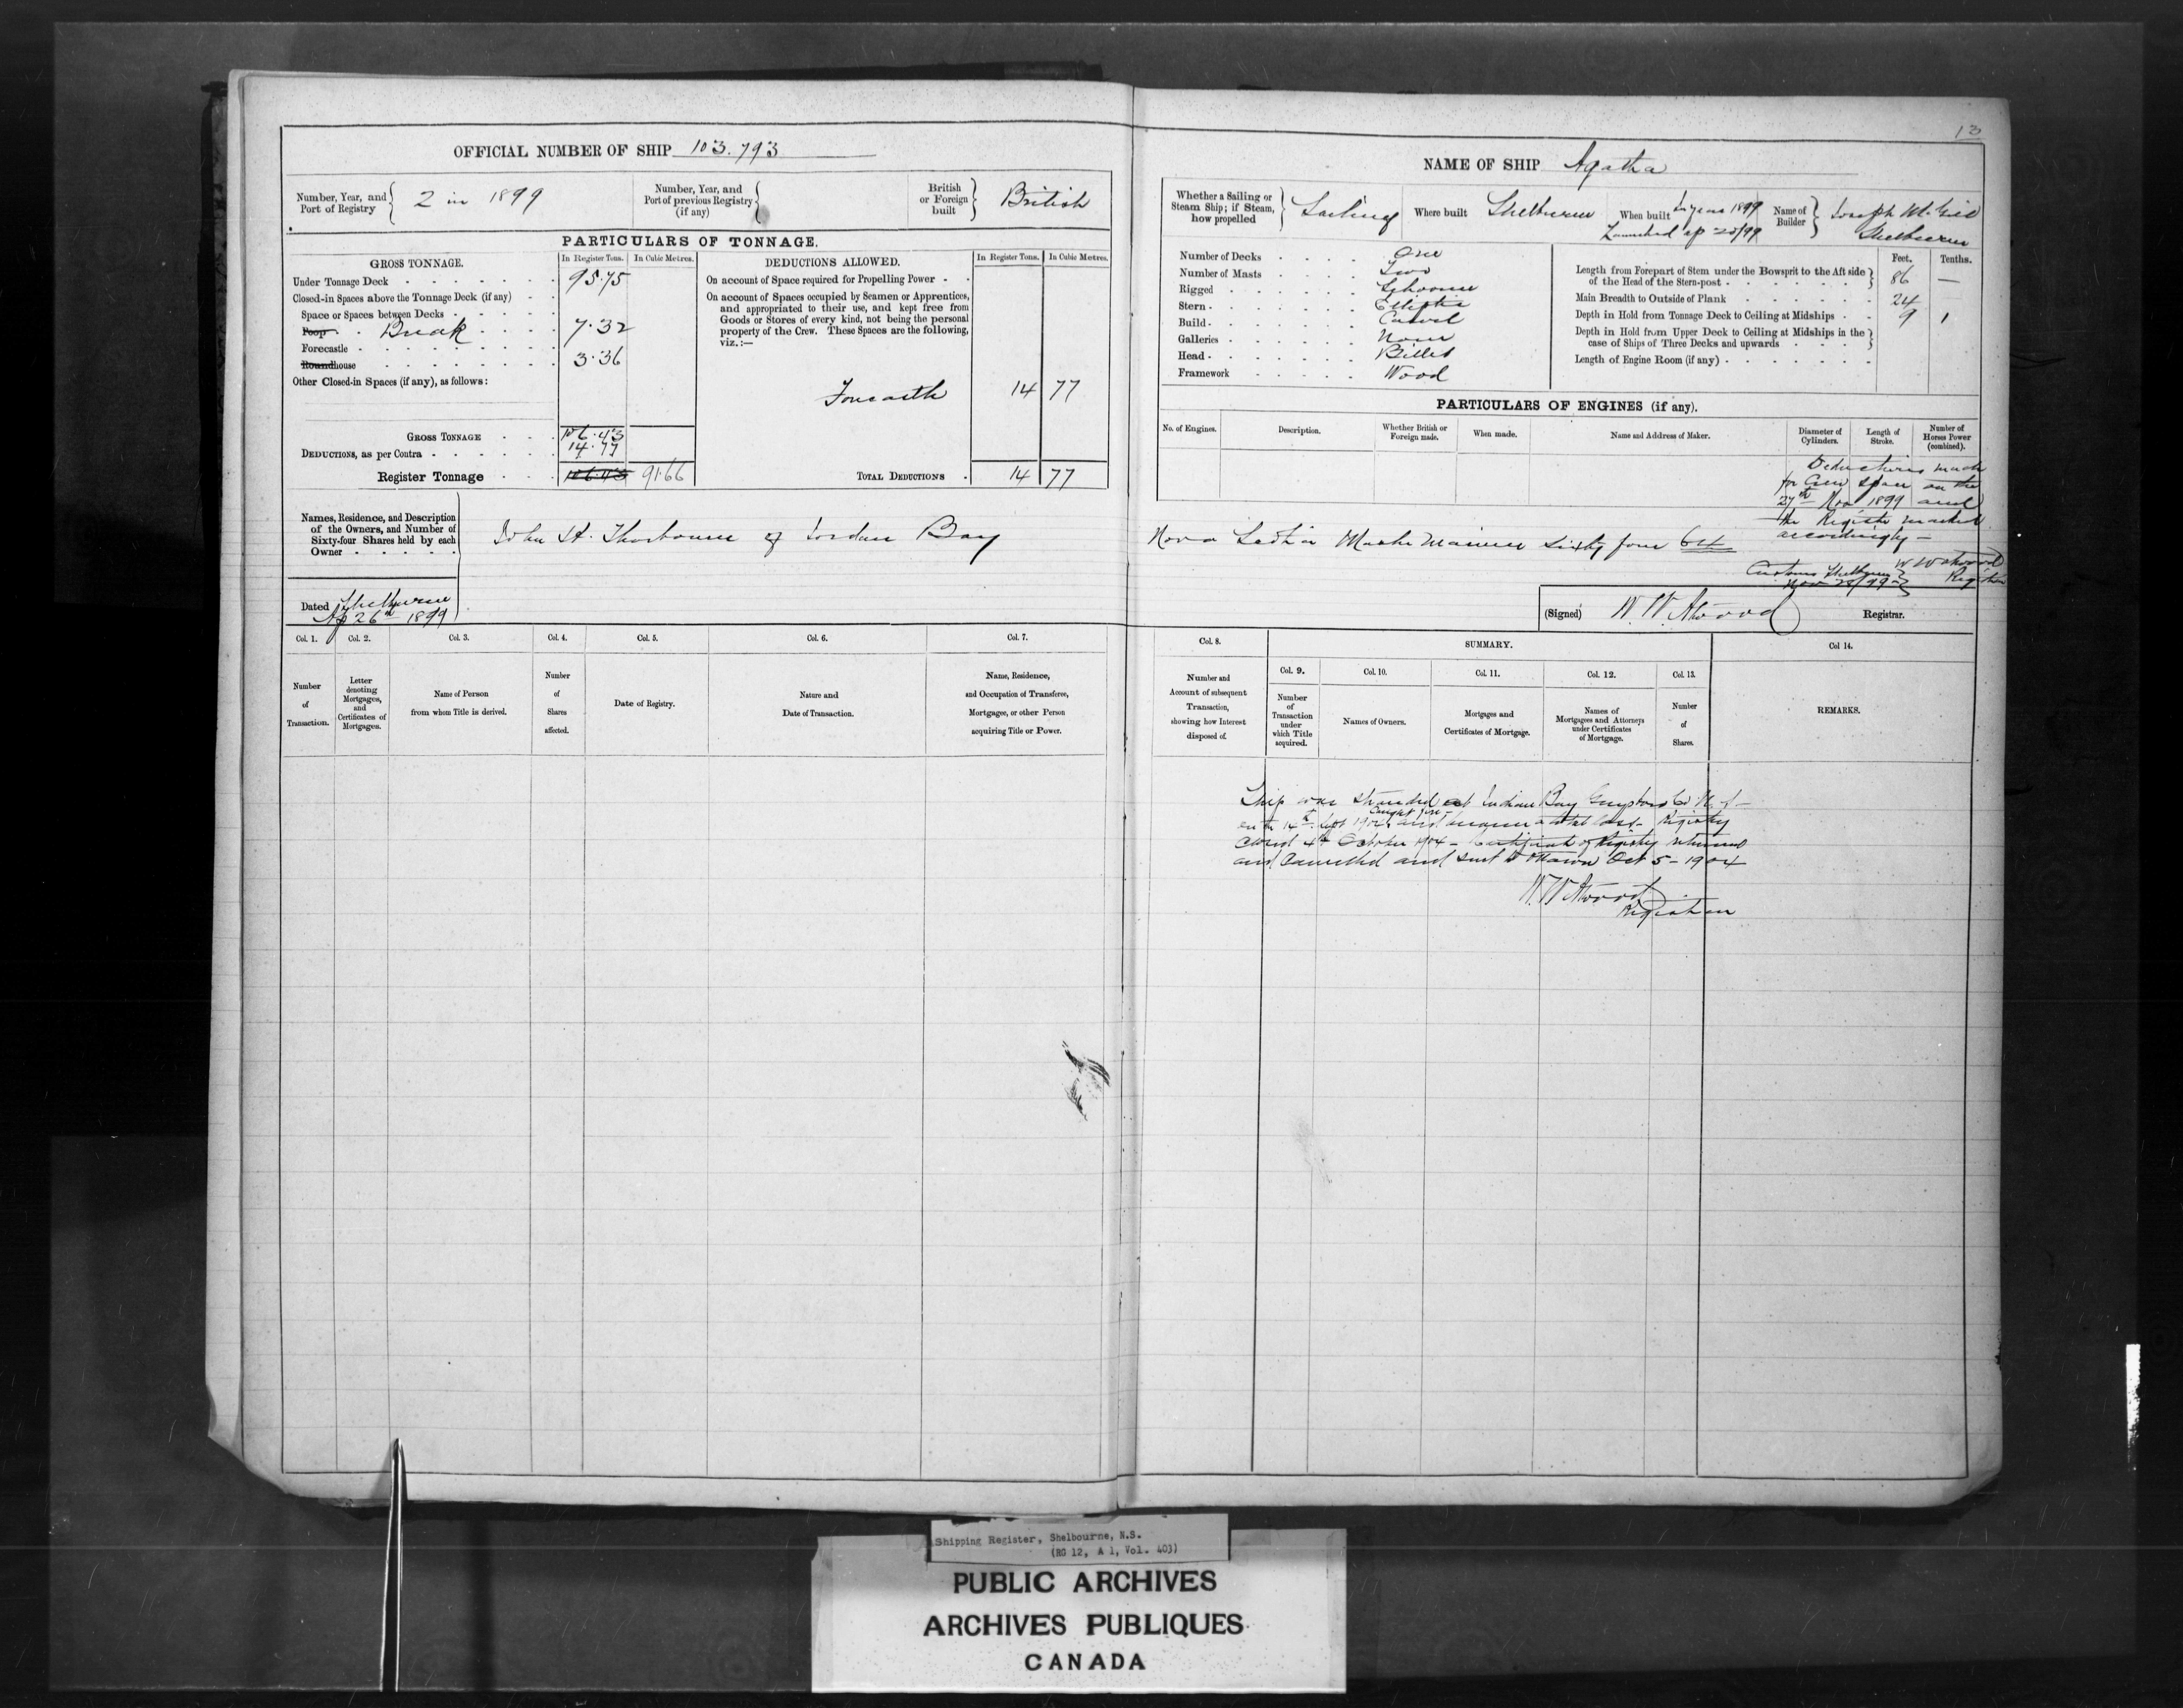 13
OFFICIAL NUMBER OF SHIP 103.793
Number, Year, and Port of Registry 2 in 1899
Number, Year, and Port of previous Registry (if any)
British or Foreign built British
PARTICULARS OF TONNAGE.
GROSS TONNAGE. In Register Tons. In Cubic Metres.
Under Tonnage Deck 95.75
Closed-in Spaces above the Tonnage Deck (if any)
Space or Spaces between Decks
Poop Break 7.32
Forecastle
Roundhouse 3.36
Other Closed-in Spaces (if any), as follows:
GROSS TONNAGE 106.43
DEDUCTIONS, as per Contra 14.77
Register Tonnage 106.43 91.66
DEDUCTIONS ALLOWED. In Register Tons. In Cubic Metres.
On account of Space required for Propelling Power
On account of Spaces occupied by Seamen or Apprentices,
and appropriated to their use, and kept free from
Goods or Stores of every kind, not being the personal
property of the Crew. These Spaces are the following,
viz.:—
14 77
TOTAL DEDUCTIONS 14 77
Names, Residence, and Description
of the Owners, and Number of
Sixty-four Shares held by each
Owner
John H. Thorbourn of Jordan Bay
Dated Shelburne
Ap 26th 1899
Col. 1. Col. 2. Col. 3. Col. 4. Col. 5. Col. 6. Col. 7.
Number of Transaction.
Letter denoting Mortgages, and Certificates of Mortgages.
Name of Person from whom Title is derived.
Number of Shares affected.
Date of Registry.
Nature and Date of Transaction.
Name, Residence, and Occupation of Transferee, Mortgagee, or other Person acquiring Title or Power.
NAME OF SHIP Agatha
Whether a Sailing or Steam Ship; if Steam, how propelled Sailing
Where built Shelburne
When built In year 1899
Launched Ap 20/99
Name of Builder Joseph McGill
Shelburne
Number of Decks One
Number of Masts Two
Rigged Schooner
Stern Elliptic
Build Carvel
Galleries None
Head Billet
Framework Wood
Feet. Tenths.
Length from Forepart of Stem under the Bowsprit to the Aft side of the Head of the Stern-post 86 —
Main Breadth to Outside of Plank 24
Depth in Hold from Tonnage Deck to Ceiling at Midships 9 1
Depth in Hold from Upper Deck to Ceiling at Midships in the case of Ships of Three Decks and upwards
Length of Engine Room (if any)
PARTICULARS OF ENGINES (if any).
No. of Engines. Description. Whether British or Foreign made. When made. Name and Address of Maker. Diameter of Cylinders. Length of Stroke. Number of Horses Power (combined).
Deductions made
for Crew space on the
27th Nov 1899 and
the Register marked
accordingly —
Customs Shelburne W W Atwood
Nov 28/99 Registrar
Nova Scotia Master Mariner Sixty four 64
(Signed) W. W. Atwood Registrar.
Col. 8. SUMMARY. Col 14.
Col. 9. Col. 10. Col. 11. Col. 12. Col. 13.
Number and Account of subsequent Transaction, showing how Interest disposed of.
Number of Transaction under which Title acquired.
Names of Owners.
Mortgages and Certificates of Mortgage.
Names of Mortgagees and Attorneys under Certificates of Mortgage.
Number of Shares.
REMARKS.
Ship was stranded at Indian Bay Guysboro Co. N.S—
caught fire
on the 14th Sept 1904 and became a total loss— Registry
closed 4th October 1904— Certificate of Registry returned
and Cancelled and sent to Ottawa Oct 5—1904
W. W Atwood
Registrar
Shipping Register, Shelbourne, N.S.
(RG 12, A 1, Vol. 403)
PUBLIC ARCHIVES
ARCHIVES PUBLIQUES
CANADA